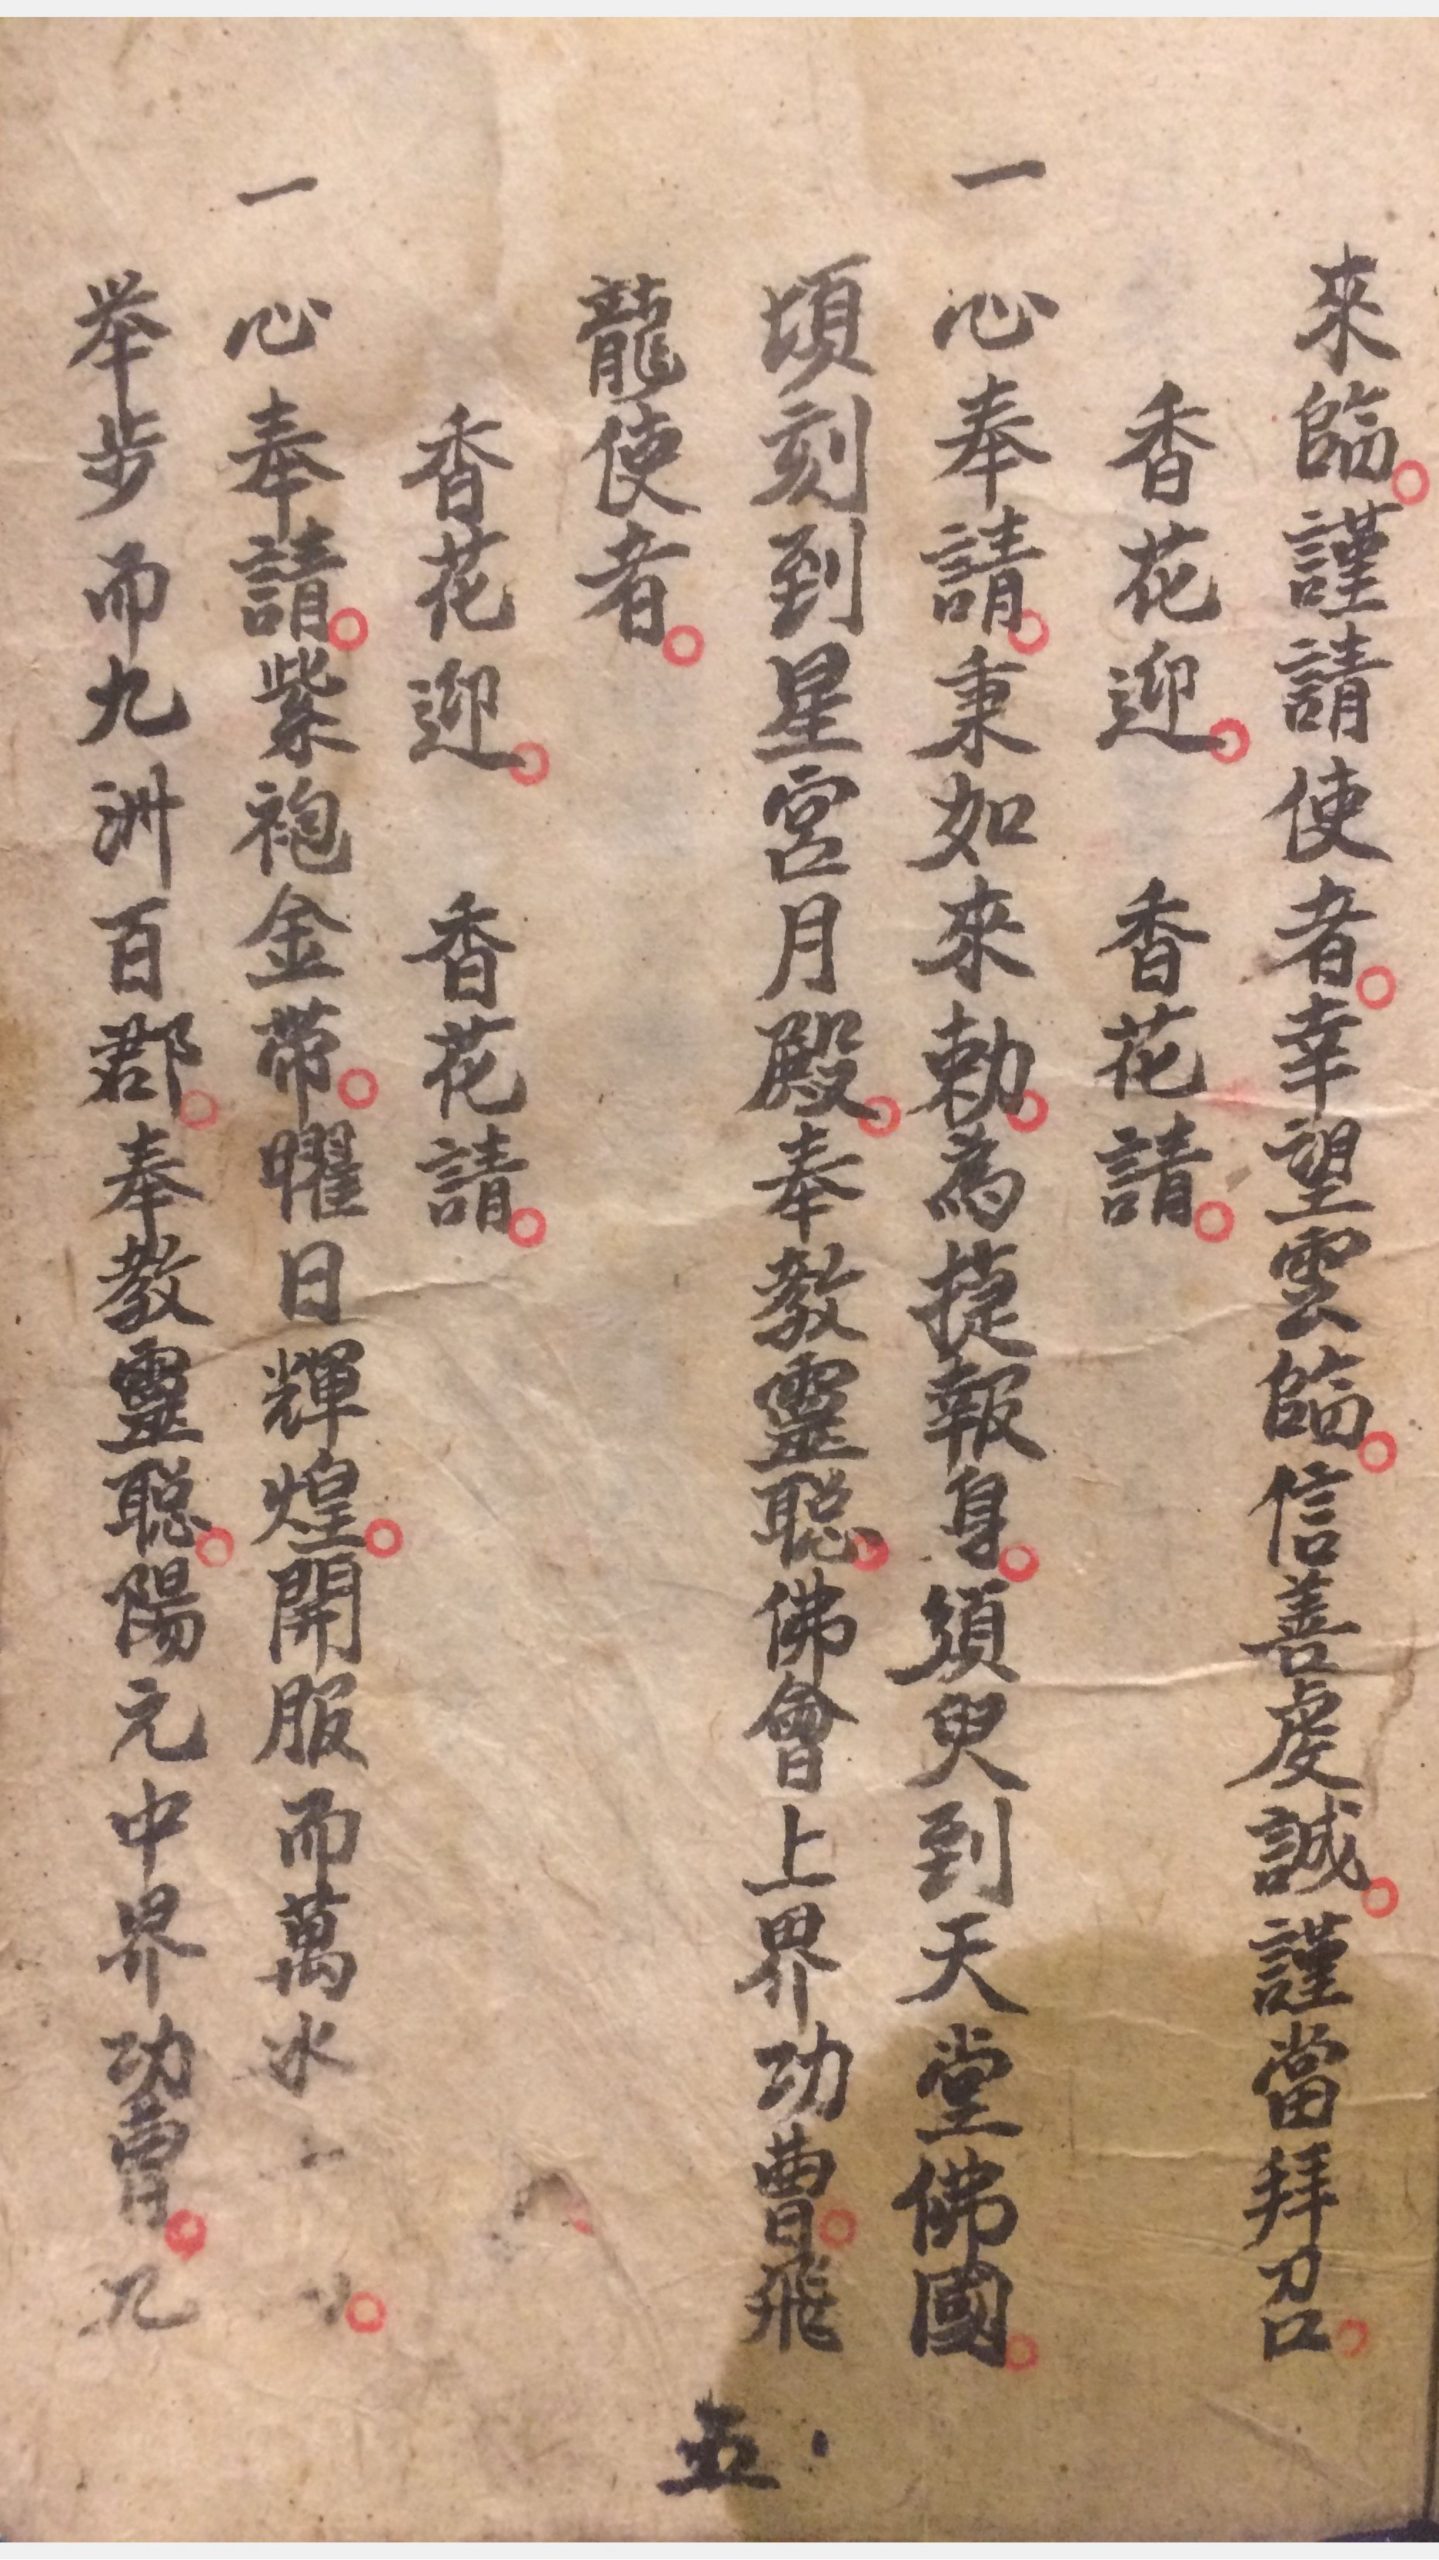 來臨謹請使者幸望雲臨信善虔誠謹當拜召
香花迎 香花請
一心奉請秉如來勅為捷報身須臾到天堂佛國
頃刻到星宮月殿奉教靈聡佛會上界功曹飛
龍使者
香花迎 香花請
一心奉請紫袍金帶曜日輝煌開服而萬水
举步而九洲百郡奉教靈聡陽元中界功曹
五